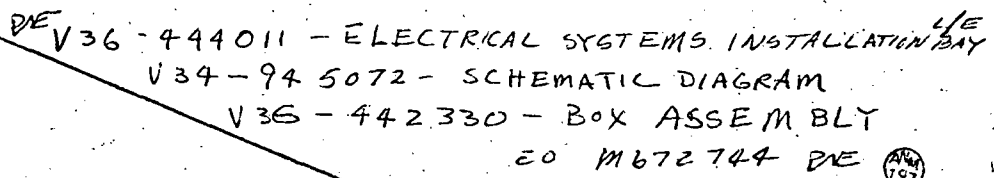 DNE V36-444011 - ELECTRICAL SYSTEMS INSTALLATION L/E BAY
V34-945072 - SCHEMATIC DIAGRAM
V36-442330 - BOX ASSEMBLY
EO M672744 DNE